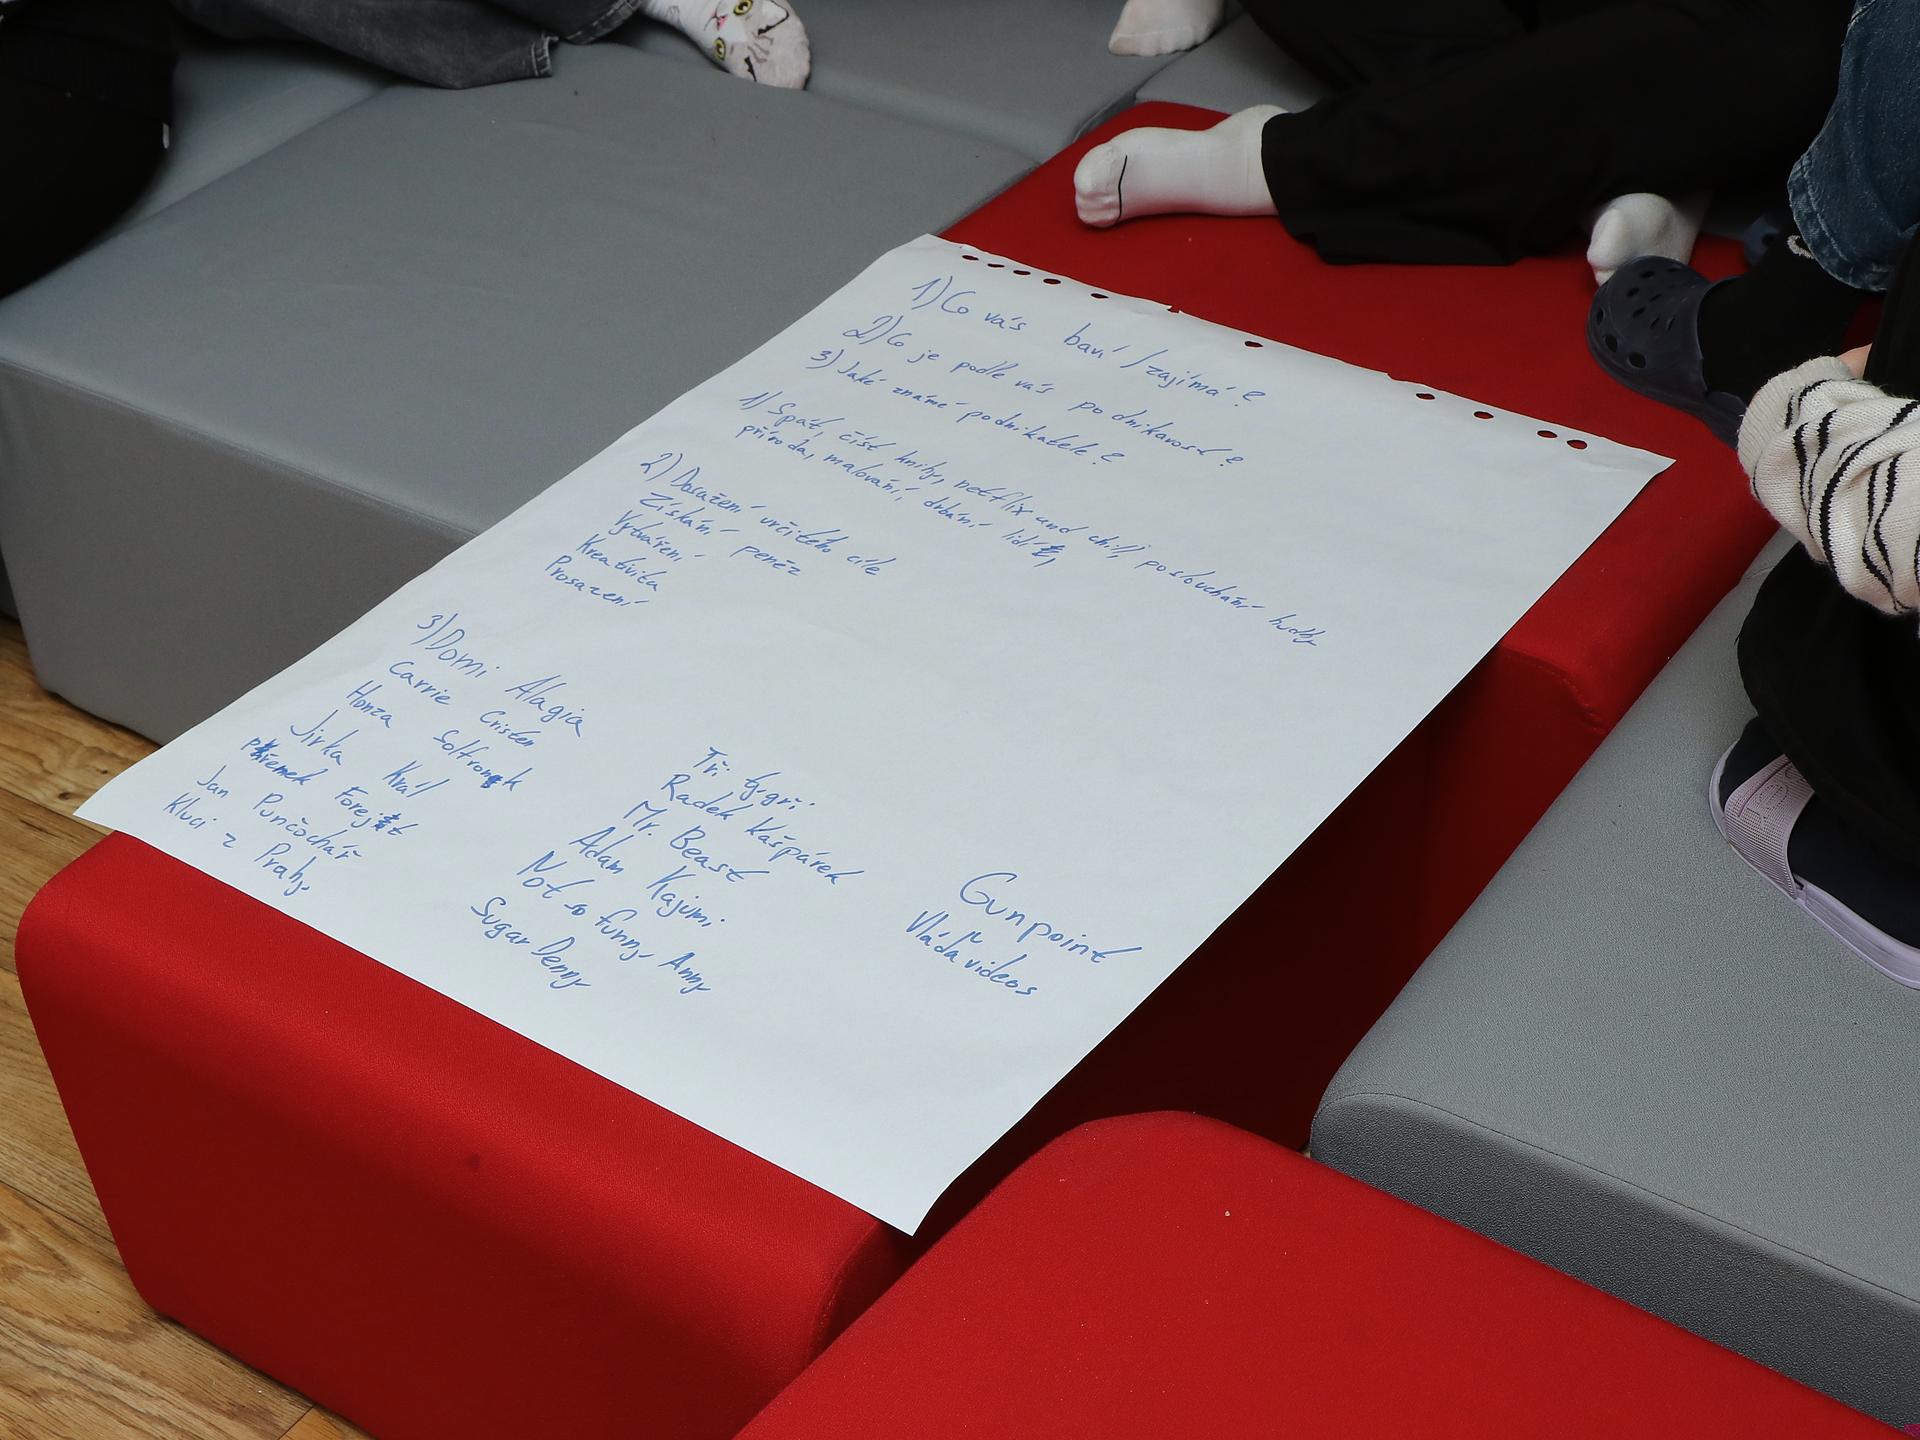 1) Co vás baví / zajímá?
2) Co je podle vás podnikavost?
3) Jaké známé podnikatele?
1) Spát, číst knihy, netflix and chill, poslouchání hudby
příroda, malování, drbání lidí,
2) Dosažení určitého cíle
Získání peněz
Vytváření
Kreativita
Prosazení
3) Domi Alagia
Carrie Cristen
Honza Soltronk
Jirka Král
Přemek Forejt
Jan Punčochář
Kluci z Prahy
Tři tygři
Radek Kašpárek
Mr. Beast
Adam Kajumi
Not so funny Anny
Sugar Denny
Gunpoint
Vláďa videos